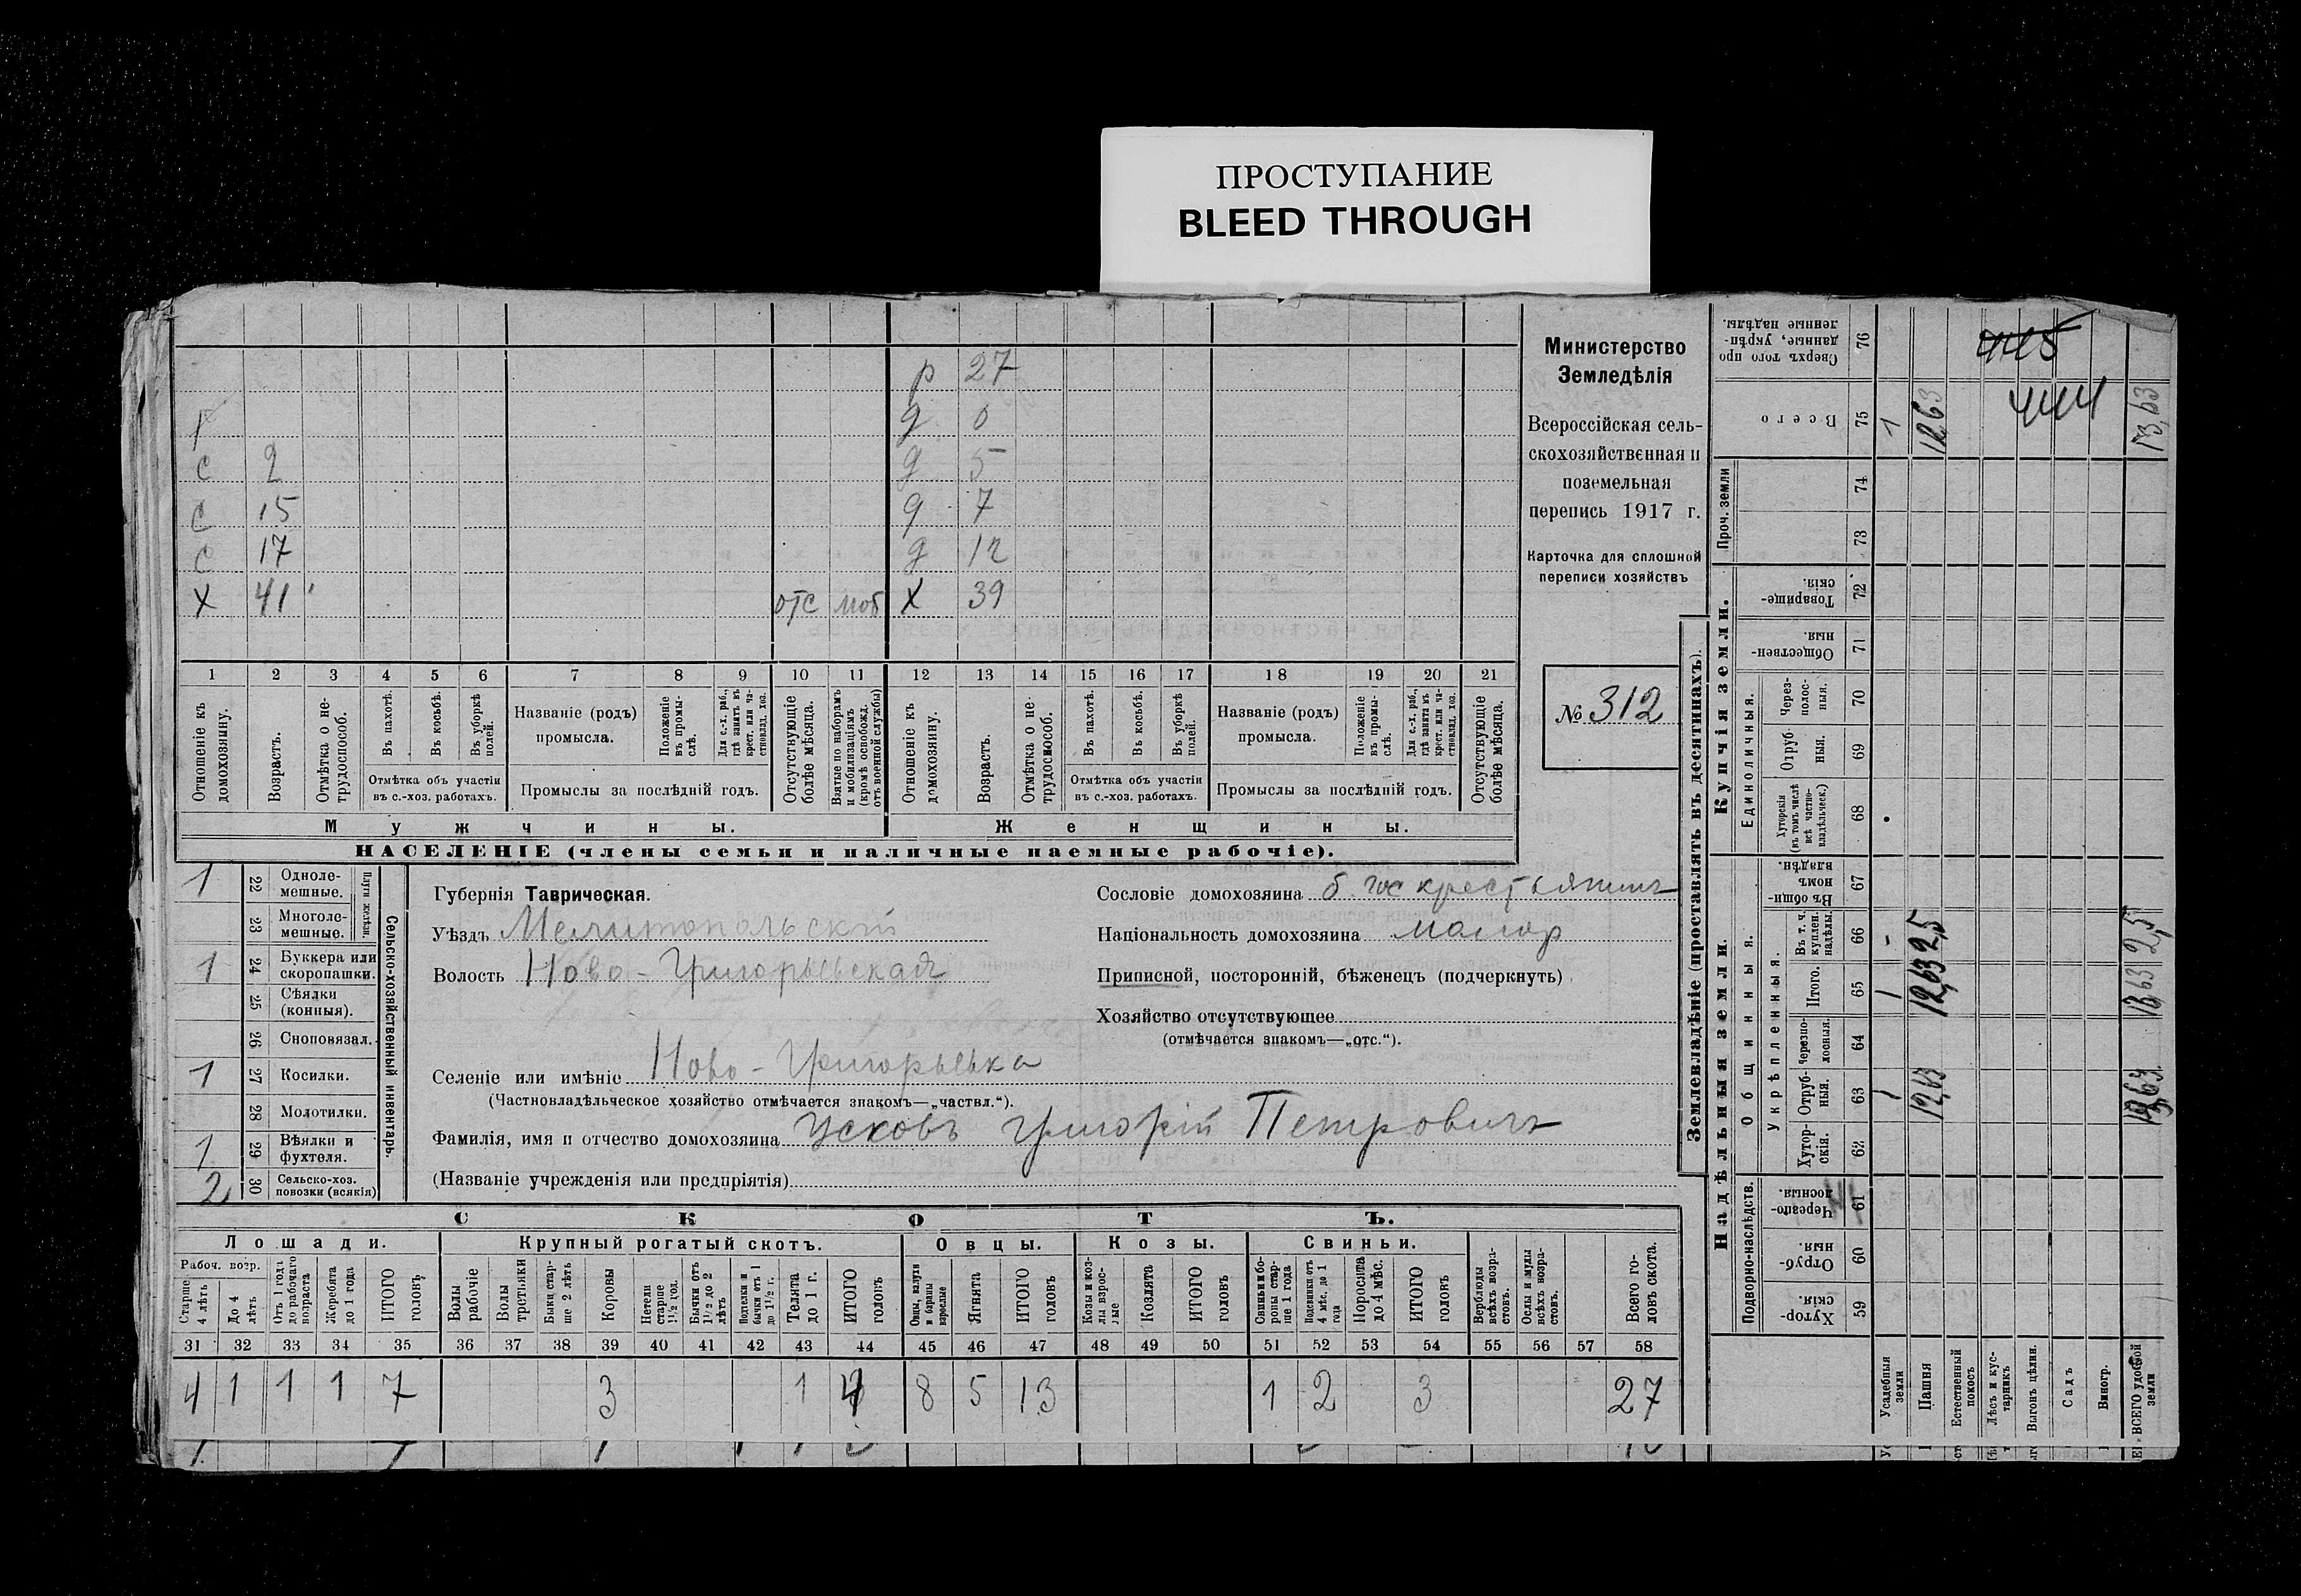 ПРОСТУПАНИЕ
BLEED THROUGH
р 27
д 0
с 2 д 5
с 15 д 7
с 17 д 12
х 41 отс моб х 39
1 2 3 4 5 6 7 8 9 10 11 12 13 14 15 16 17 18 19 20 21
Отношеніе къ домохозяину.
Возрастъ.
Отмѣтка о не-трудоспособ.
Въ пахотѣ.
Въ косьбѣ.
Въ уборкѣ полей.
Отмѣтка объ участіи
въ с.-хоз. работахъ.
Названіе (родъ)
промысла.
Положеніе въ промы-слѣ.
Для с.-х. раб., гдѣ занятъ въ крест. или ча-стновлад. хоз.
Промыслы за послѣдній годъ.
Отсутствующіе болѣе мѣсяца.
Взятые по наборамъ и мобилизаціямъ (кромѣ освобожд. отъ военной службы)
Отношеніе къ домохозяину.
Возрастъ.
Отмѣтка о не-трудоспособ.
Въ пахотѣ.
Въ косьбѣ.
Въ уборкѣ полей.
Отмѣтка объ участіи
въ с.-хоз. работахъ.
Названіе (родъ)
промысла.
Положеніе въ промы-слѣ.
Для с.-х. раб., гдѣ занята въ крест. или ча-стновлад. хоз.
Промыслы за послѣдній годъ.
Отсутствующіе болѣе мѣсяца.
Мужчины.
Женщины.
НАСЕЛЕНІЕ (члены семьи и наличные наемные рабочіе).
Министерство
Земледѣлія
Всероссійская сель-
скохозяйственная и
поземельная
перепись 1917 г.
Карточка для сплошной
переписи хозяйствъ
№ 312
1 22 Одноле-мешные.
23 Многоле-мешные.
Плуги желѣзн.
1 24 Буккера или скоропашки.
25 Сѣялки (конныя).
26 Сноповязал.
1 27 Косилки.
28 Молотилки.
1 29 Вѣялки и фухтеля.
2 30 Сельско-хоз. повозки (всякія)
Сельско-хозяйственный инвентарь.
Губернія Таврическая.
Уѣздъ Мелитопольскій
Волость Ново-Григорьевская
Селеніе или имѣніе Ново-Григорьевка
(Частновладѣльческое хозяйство отмѣчается знакомъ—„частвл.“).
Фамилія, имя и отчество домохозяина Усковъ Григорій Петровичъ
(Названіе учрежденія или предпріятія)
Сословіе домохозяина б. гос крестьянинъ
Національность домохозяина малор
Приписной, посторонній, бѣженецъ (подчеркнуть)
Хозяйство отсутствующее
(отмѣчается знакомъ—„отс.“).
СКОТЪ.
Лошади. Крупный рогатый скотъ. Овцы. Козы. Свиньи.
Рабоч. возр.
Старше 4 лѣтъ
До 4 лѣтъ
Отъ 1 года до рабочаго возраста
Жеребята до 1 года
ИТОГО головъ
Волы рабочіе
Волы третьяки
Быки стар-ше 2 лѣтъ
Коровы
Нетели старше 1½ год.
Бычки отъ 1½ до 2 лѣтъ
Телята до 1 г.
ИТОГО головъ
Овцы, валухи и бараны взрослые
Ягнята
ИТОГО головъ
Козы и коз-лы взрос-лые
Козлята
ИТОГО головъ
Свиньи и бо-ровы стар-ше 1 года
Подсвинки отъ 4 мѣс. до 1 года
Поросята до 4 мѣс.
ИТОГО головъ
Верблюды всѣхъ возра-стовъ.
Ослы и мулы всѣхъ возра-стовъ.
Всего го-ловъ скота.
31 32 33 34 35 36 37 38 39 40 41 42 43 44 45 46 47 48 49 50 51 52 53 54 55 56 57 58
4 1 1 1 7 3 1 4 8 5 13 1 2 3 27
Землевладѣніе (проставлять въ десятинахъ).
Надѣльныя земли.
Купчія земли.
Проч. земли
Подворно-наслѣдств.
Общинныя.
Укрѣпленныя.
Единоличныя.
Хутор-скія. 59
Отруб-ныя. 60
Черезпо-лосныя. 61
Хутор-скія. 62
Отруб-ныя. 63
Черезпо-лосныя. 64
Итого. 65
Въ т. ч. куплен. надѣлы. 66
Въ общин-номъ владѣн. 67
Хуторскія (въ томъ числѣ всѣ частно-владѣльческ.) 68
Отруб-ныя. 69
Через-полос-ныя. 70
Обществен-ныя. 71
Товарище-скія. 72
73
74
Всего 75
Сверхъ того про-данные, укрѣп-ленные надѣлы. 76
Усадебныя земли 1 1 1
Пашня 12,63 12,63 2,5 12,63
Естественный покосъ
Лѣсъ и кус-тарникъ
Выгонъ цѣлин.
Садъ
Виногр.
ВСЕГО удобной земли 13,63 13,63 2,5 13,63